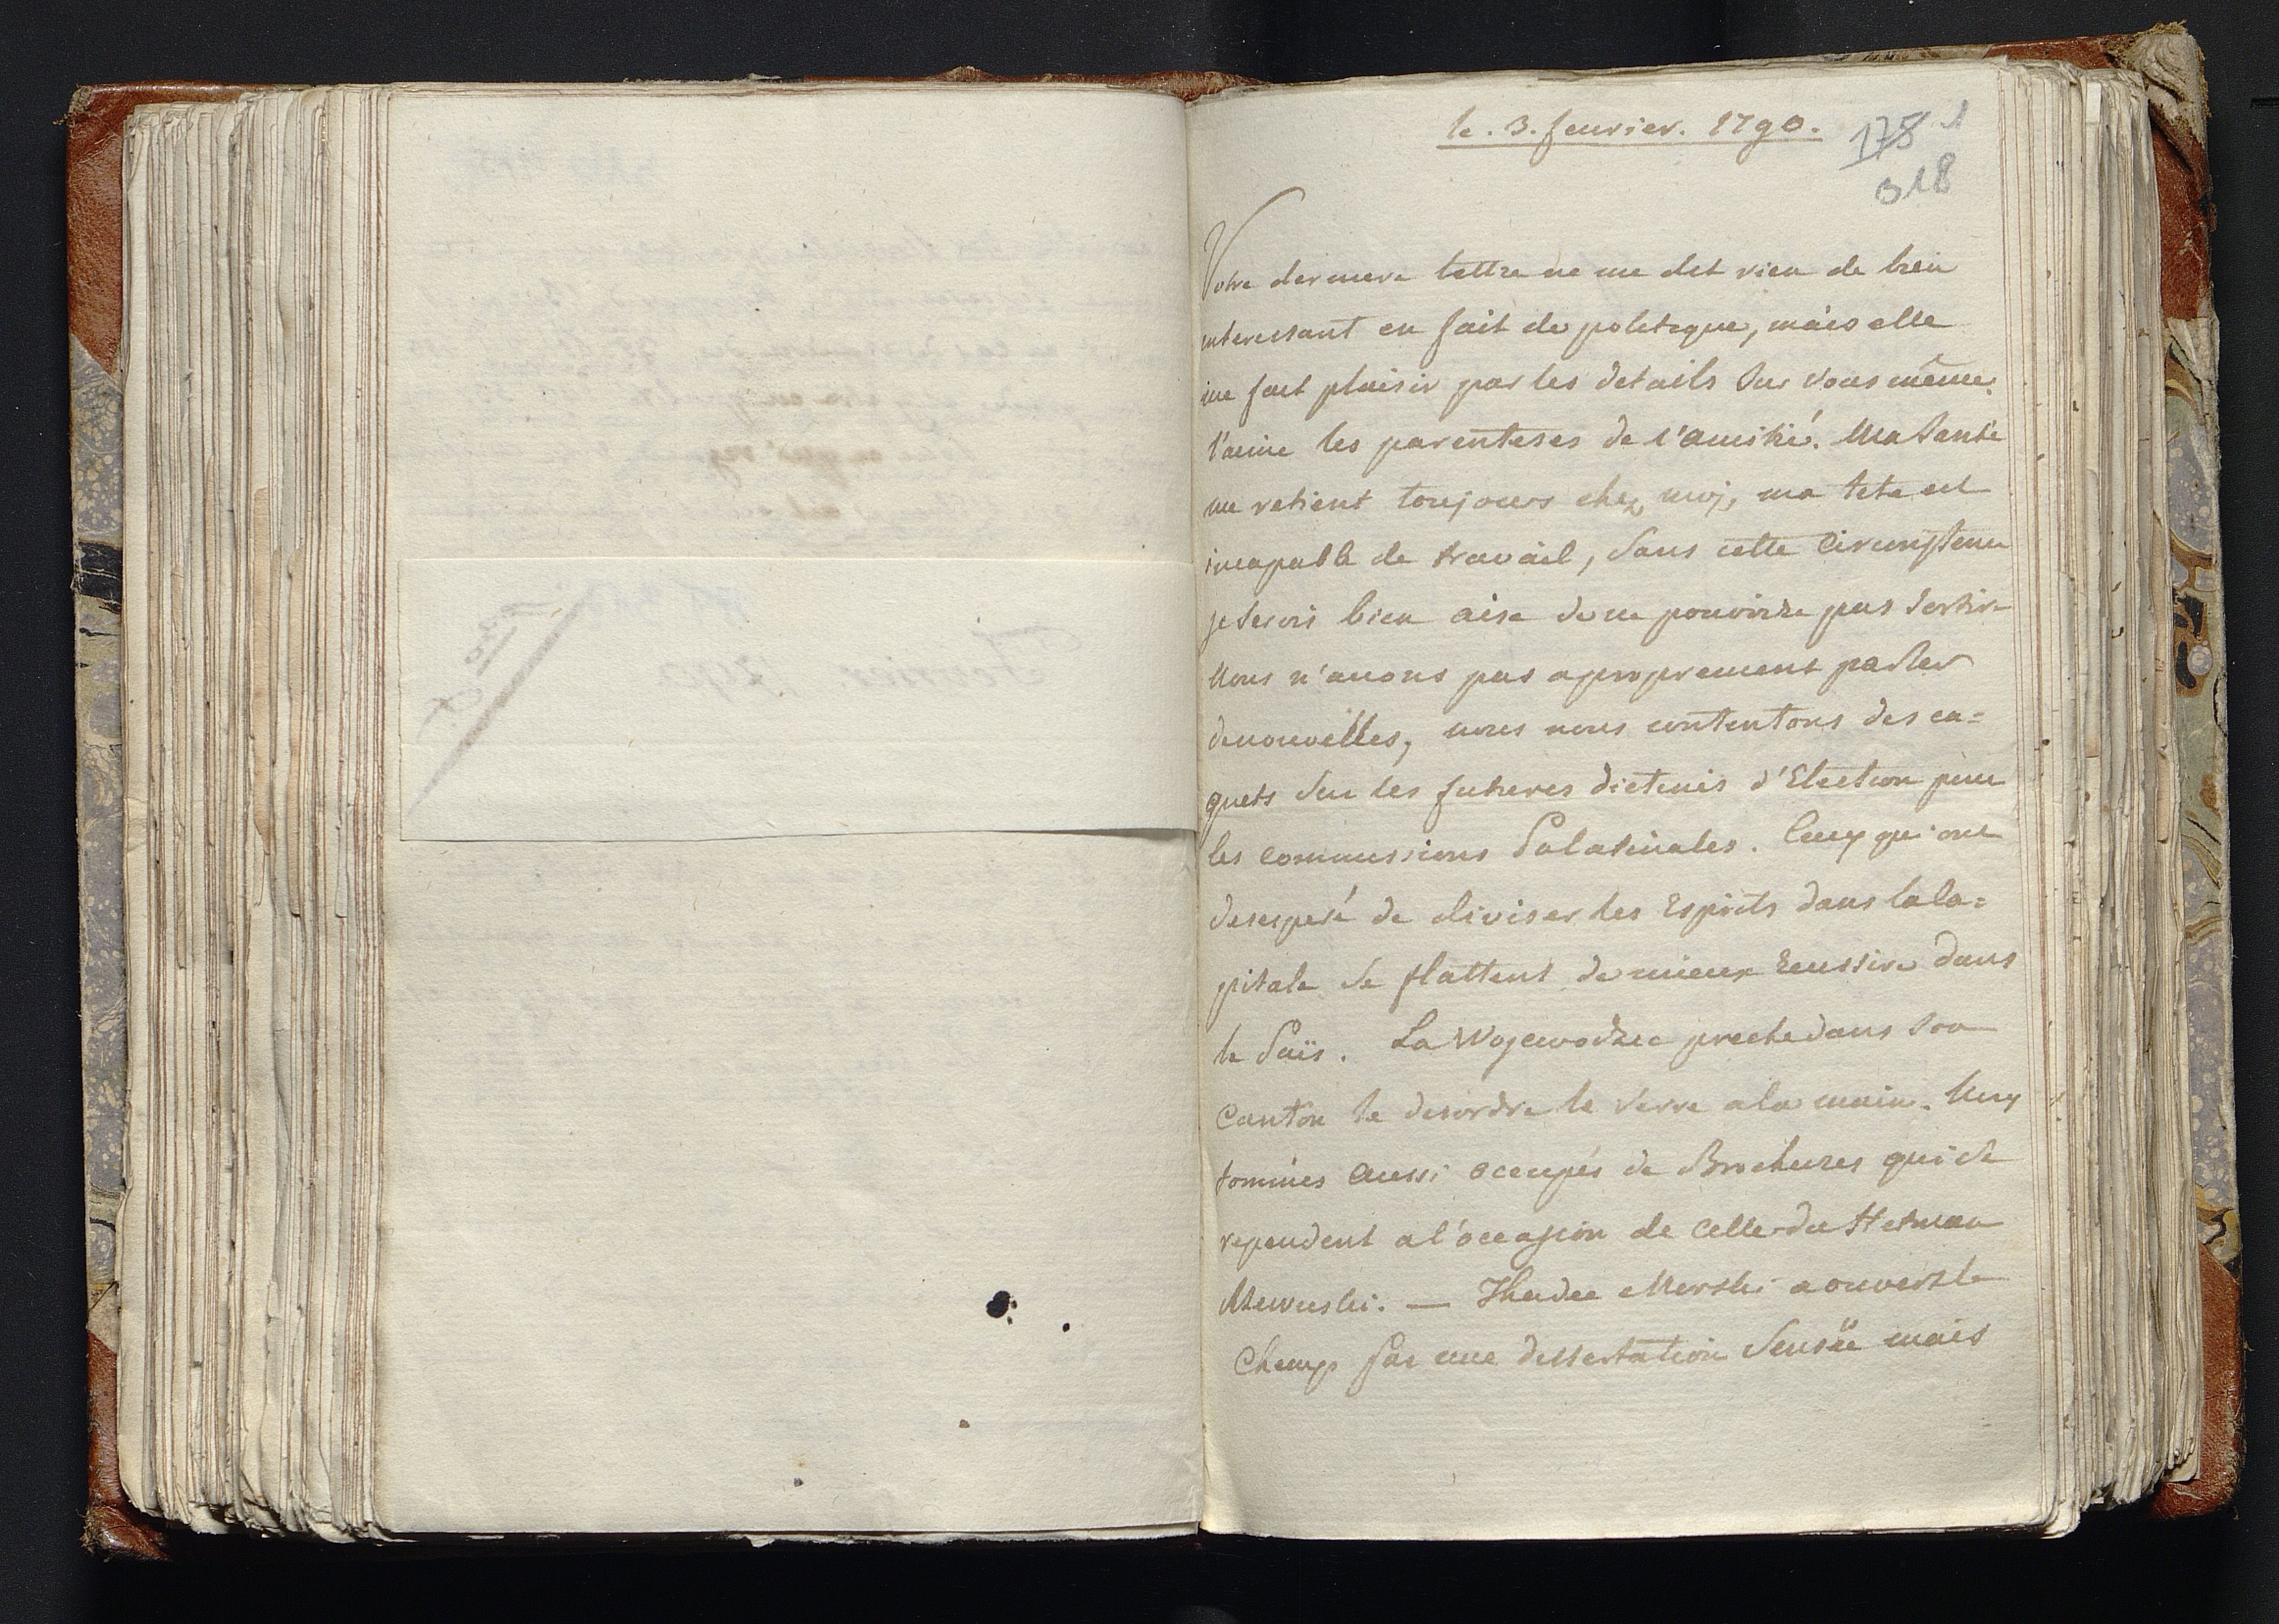 le. 3. feuvrier. 1790.
175 1
318
Votre derniere lettre ne me dit rien de bien
interessant en fait de politique, mais elle
me fait plaisir par les details sur vous même.
l'aime les parenteses de l'amitié. Ma santé
me retient toujours chez moj, ma tete est
incapable de travail, sans cette circonstence
je serois bien aise de ne pouvoire pas sortire
Nous n'avons pas aproprement parler
de nouvelles, nous nous contentons des ca=
quets sur les futures dietinis d'Election pour
les commissions Palatinales. Ceux qui ont
desesperé de diviser les Esprits dans la Ca=
pitale se flattent de mieux Reussire dans
le Païs. La Wojewodzic preche dans son
Canton le desordre le verre a la main. Nous
sommes aussi occupés de Brochures qui se
rependent a l'occasion de celle du Hetman
Rzewuski. — Thadee Morski a ouvert le
Champ par une dissertation Sensëe mais